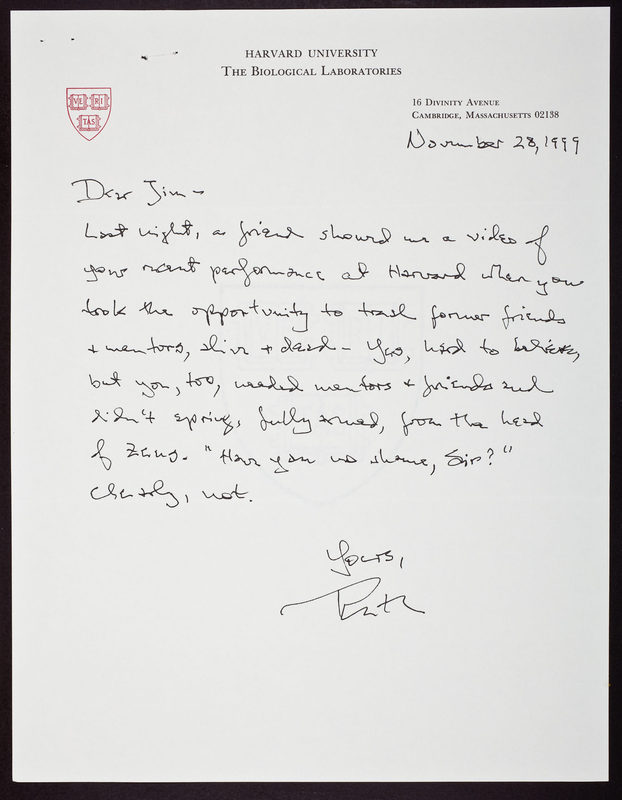 HARVARD UNIVERSITY
THE BIOLOGICAL LABORATORIES
VE RI
TAS
16 DIVINITY AVENUE
CAMBRIDGE, MASSACHUSETTS 02138
November 28, 1999
Dear Jim –
Last night, a friend showed me a video of
your recent performance at Harvard when you
took the opportunity to trash former friends
+ mentors, alive + dead – Yes, hard to believe,
but you, too, needed mentors + friends and
didn't spring, fully armed, from the head
of Zeus. "Have you no shame, Sir?"
Clearly, not.
Yours,
Ruth